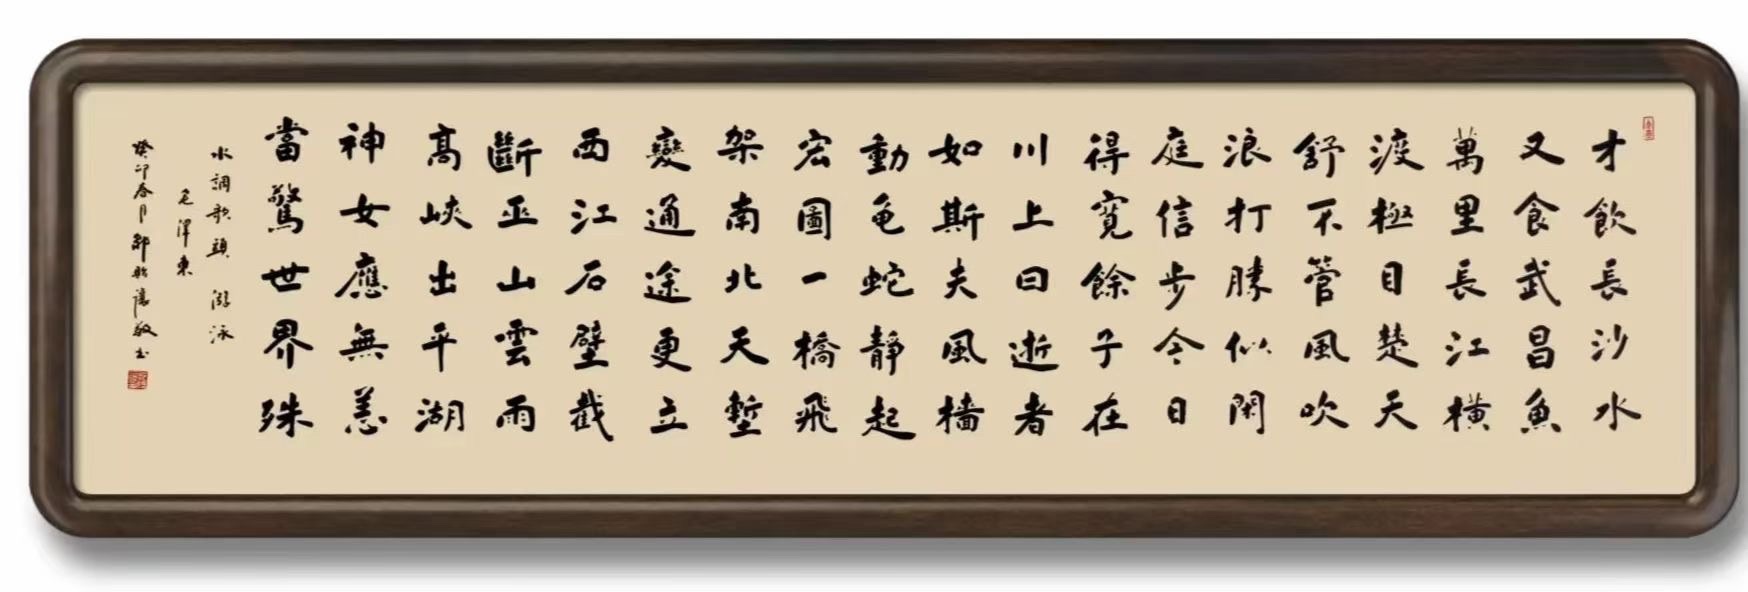 才飲長沙水
又食武昌魚
萬里長江橫
渡極目楚天
舒不管風吹
浪打勝似閑
庭信步今日
得寬餘子在
川上曰逝者
如斯夫風檣
動龟蛇靜起
宏圖一橋飛
架南北天塹
變通途更立
西江石壁截
斷巫山雲雨
高峽出平湖
神女應無恙
當驚世界殊
水調歌頭 游泳
毛澤東
癸卯春月敬書